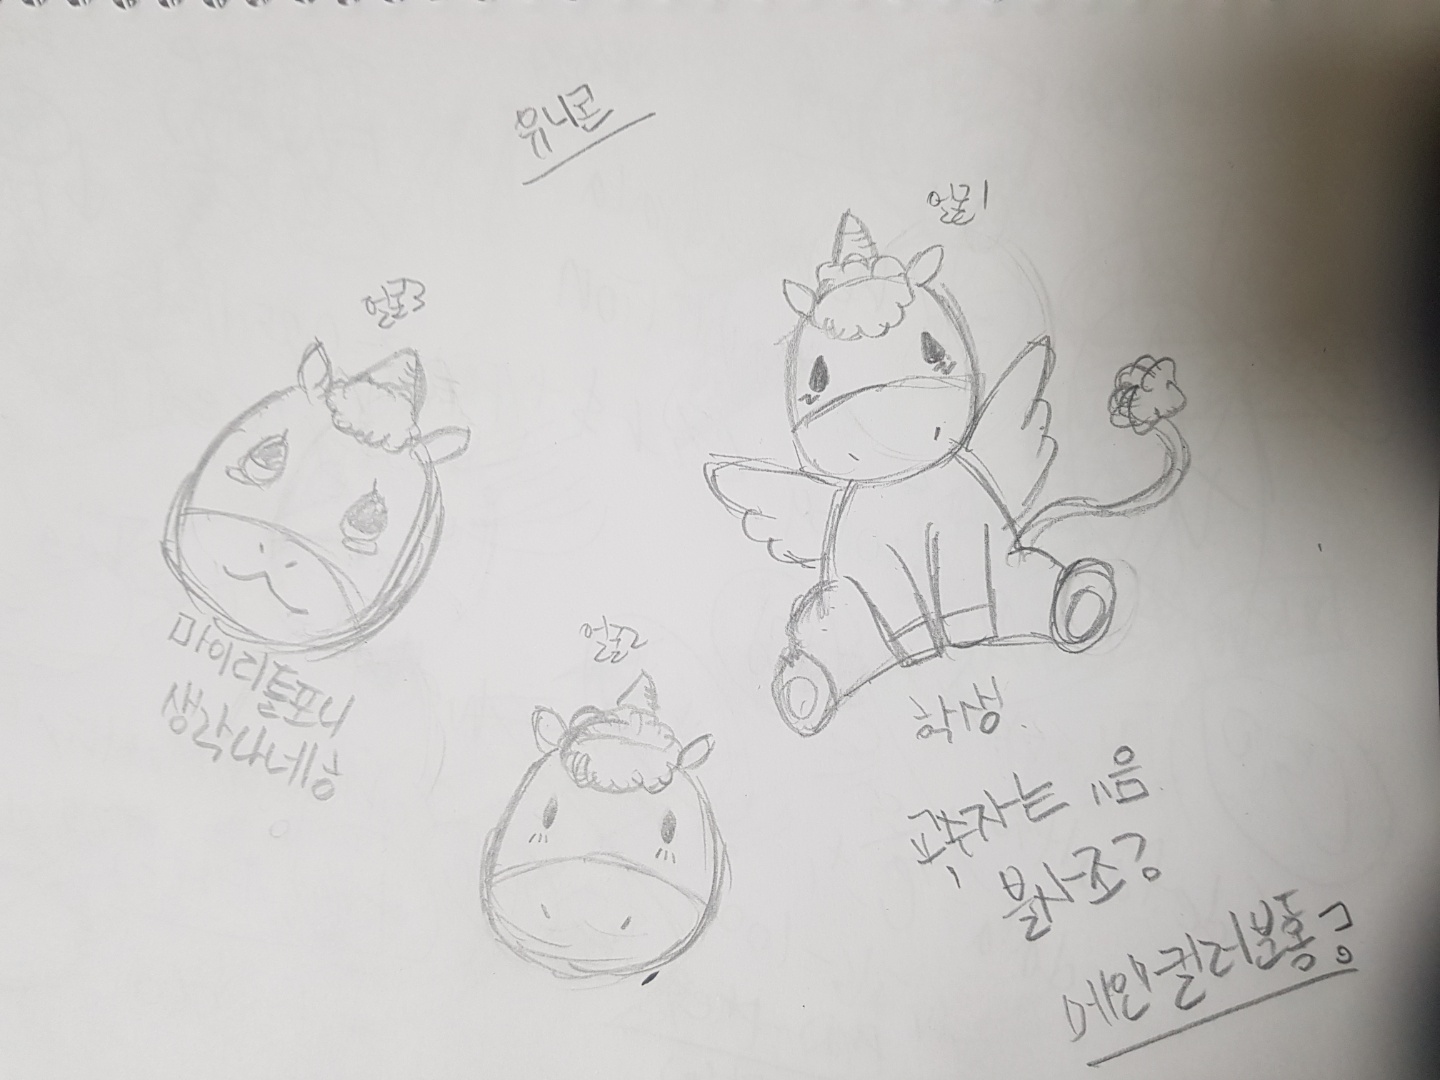 유니콘
얼굴1
얼굴3
마이리틀포니
생각나네ㅎ
얼굴2
학생
교수자는 음
불사조?
메인컬러분홍?